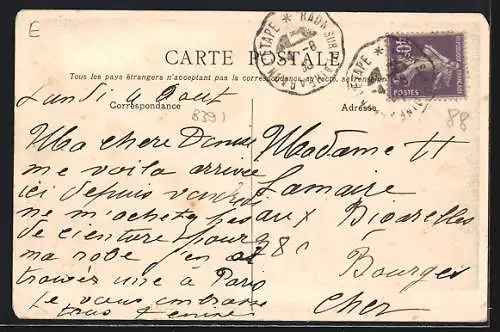 E
CARTE POSTALE
Tous les pays étrangers n'acceptent pas la correspondance au recto, se renseigner
ETAPE * BADONVILLER
Correspondance
Adresse
POSTES
8391
88
Lundi 4 Aout
Ma chere
me voila arrivée
ici depuis vendredi
ne m'achetez pas
de ceinture pour
ma robe j'en ai
trouvé une à Paris
Je vous embrasse
tous
Madame H
Lamaire
aux Bigarelles
Bourges
Cher